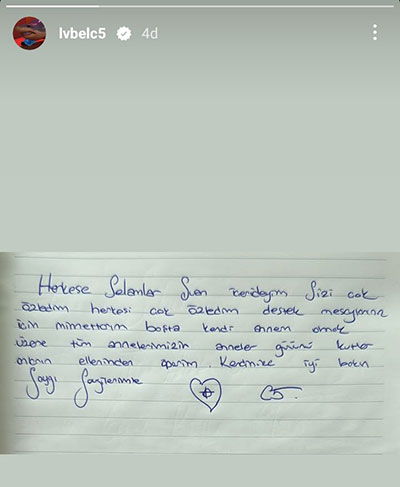 lvbelc5 4d
Herkese Selamlar Şuan içerdeyim Sizi çok
özledim herkesi çok özledim destek mesajlarınız
için minnettarım başta kendi annem olmak
üzere tüm annelerimizin anneler gününü kutlar
onların ellerinden öperim. Kendinize iyi bakın
Saygı Sevgilerimle C5.